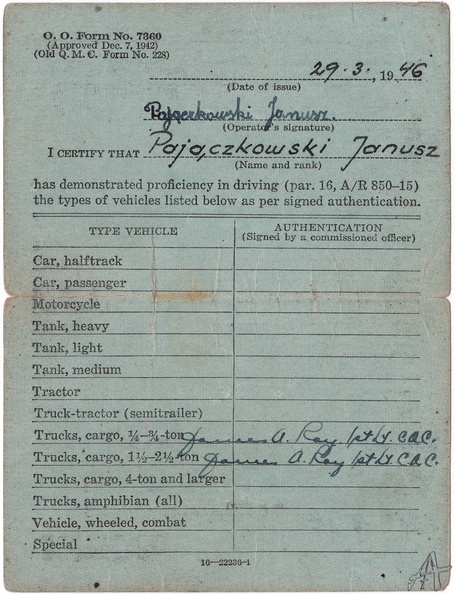 O. O. Form No. 7360
(Approved Dec. 7, 1942)
(Old Q. M. C. Form No. 228)
29·3·, 1946
(Date of issue)
Pajączkowski Janusz.
(Operator's signature)
I CERTIFY THAT Pajączkowski Janusz
(Name and rank)
has demonstrated proficiency in driving (par. 16, A/R 850–15)
the types of vehicles listed below as per signed authentication.
TYPE VEHICLE AUTHENTICATION
(Signed by a commissioned officer)
Car, halftrack
Car, passenger
Motorcycle
Tank, heavy
Tank, light
Tank, medium
Tractor
Truck-tractor (semitrailer)
Trucks, cargo, ¼–¾-ton James A. Ray 1st Lt. C.A.C.
Trucks, cargo, 1½–2½-ton James A. Ray 1st Lt. C.A.C.
Trucks, cargo, 4-ton and larger
Trucks, amphibian (all)
Vehicle, wheeled, combat
Special
16—22236-1